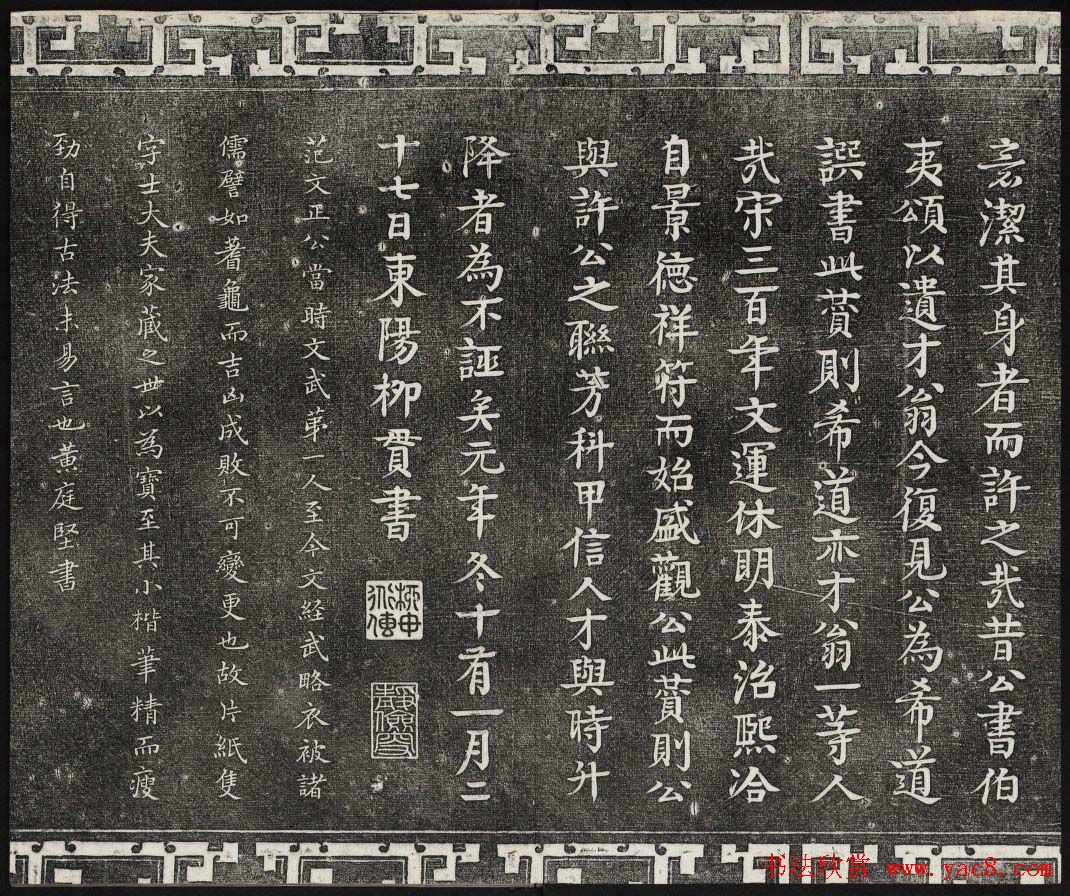 意潔其身者而許之㢤昔公書伯
夷頌以遺才翁今復見公為希道
譔書此贊則希道亦才翁一等人
㢤宋三百年文運休明泰治熙洽
自景德祥符而始盛觀公此贊則公
與許公之聯芳科甲信人才與時升
降者為不誣矣元年冬十有一月二
十七日東陽柳貫書
范文正公當時文武苐一人至今文経武略衣被諸
儒譬如蓍龜而吉凶成敗不可變更也故片紙隻
字士大夫家藏之世以為寶至其小楷筆精而瘦
勁自得古法未易言也黃庭堅書
书法欣赏 www.yac8.com